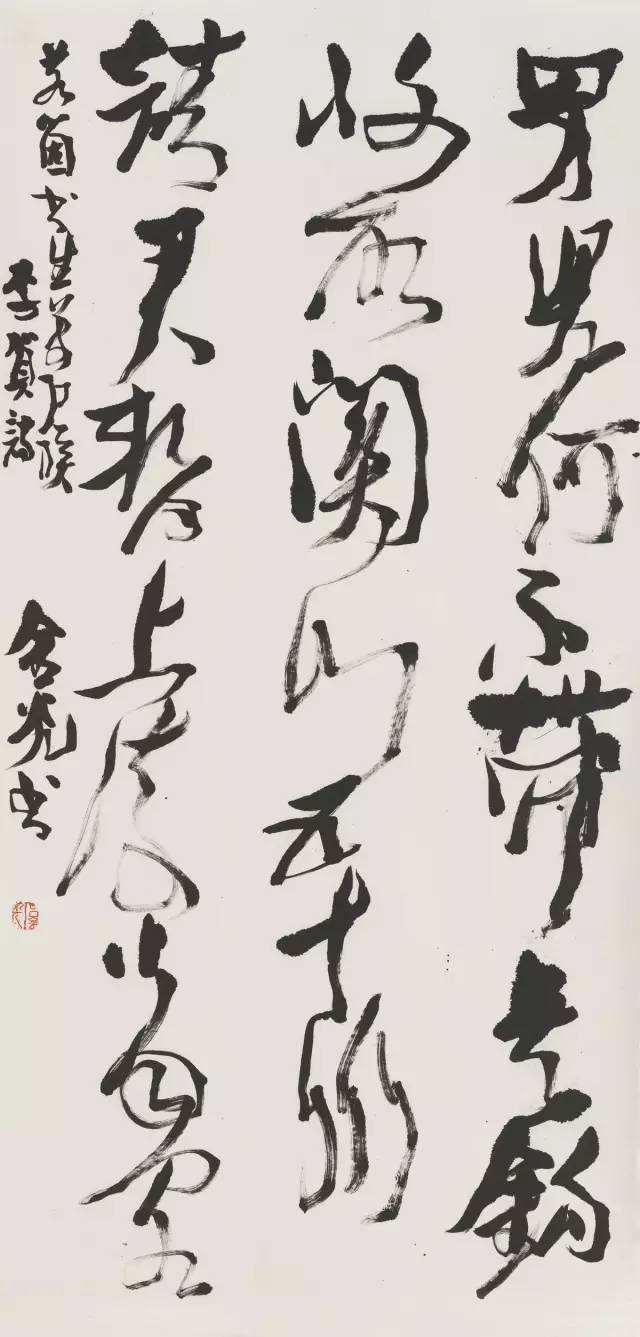 男兒何不帶吳鉤
收取關山五十州
請君暫上凌煙閣
若箇書生萬戶侯
李賀詩
書